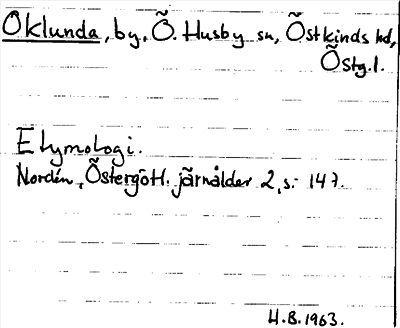 Oklunda, by, Ö. Husby sn, Östkinds hd,
Östg.l.
Etymologi.
Nordén, Östergötl. järnålder 2, s. 147.
H.B.1963.